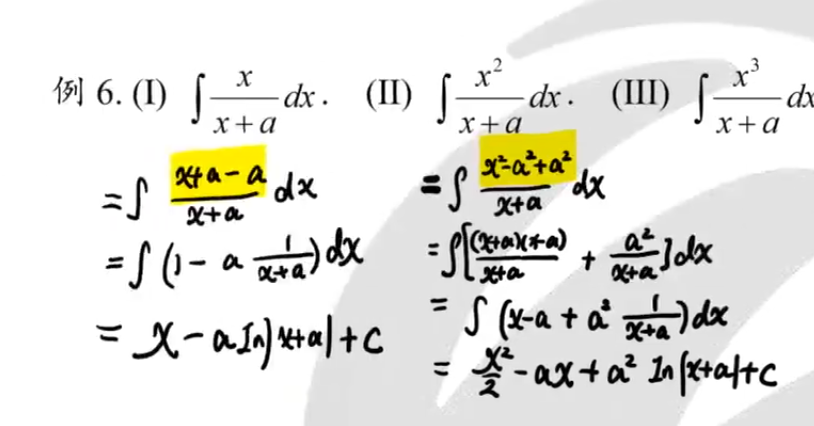 例 6. (I) ∫ x/(x+a) dx. (II) ∫ x²/(x+a) dx. (III) ∫ x³/(x+a) dx
= ∫ (x+a-a)/(x+a) dx
= ∫ (1 - a 1/(x+a)) dx
= x - a ln|x+a| + c
= ∫ (x²-a²+a²)/(x+a) dx
= ∫ [(x+a)(x-a)/(x+a) + a²/(x+a)] dx
= ∫ (x-a + a² 1/(x+a)) dx
= x²/2 - ax + a² ln|x+a| + c